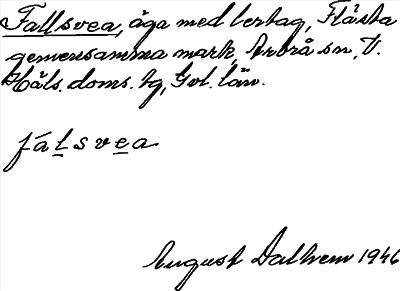 Fallsvea, äga med lertag, Flästa
gemensamma mark, Arbrå sn, V.
Häls. doms. tg, Gvl. län.
fálsvea
August Dalhem 1946